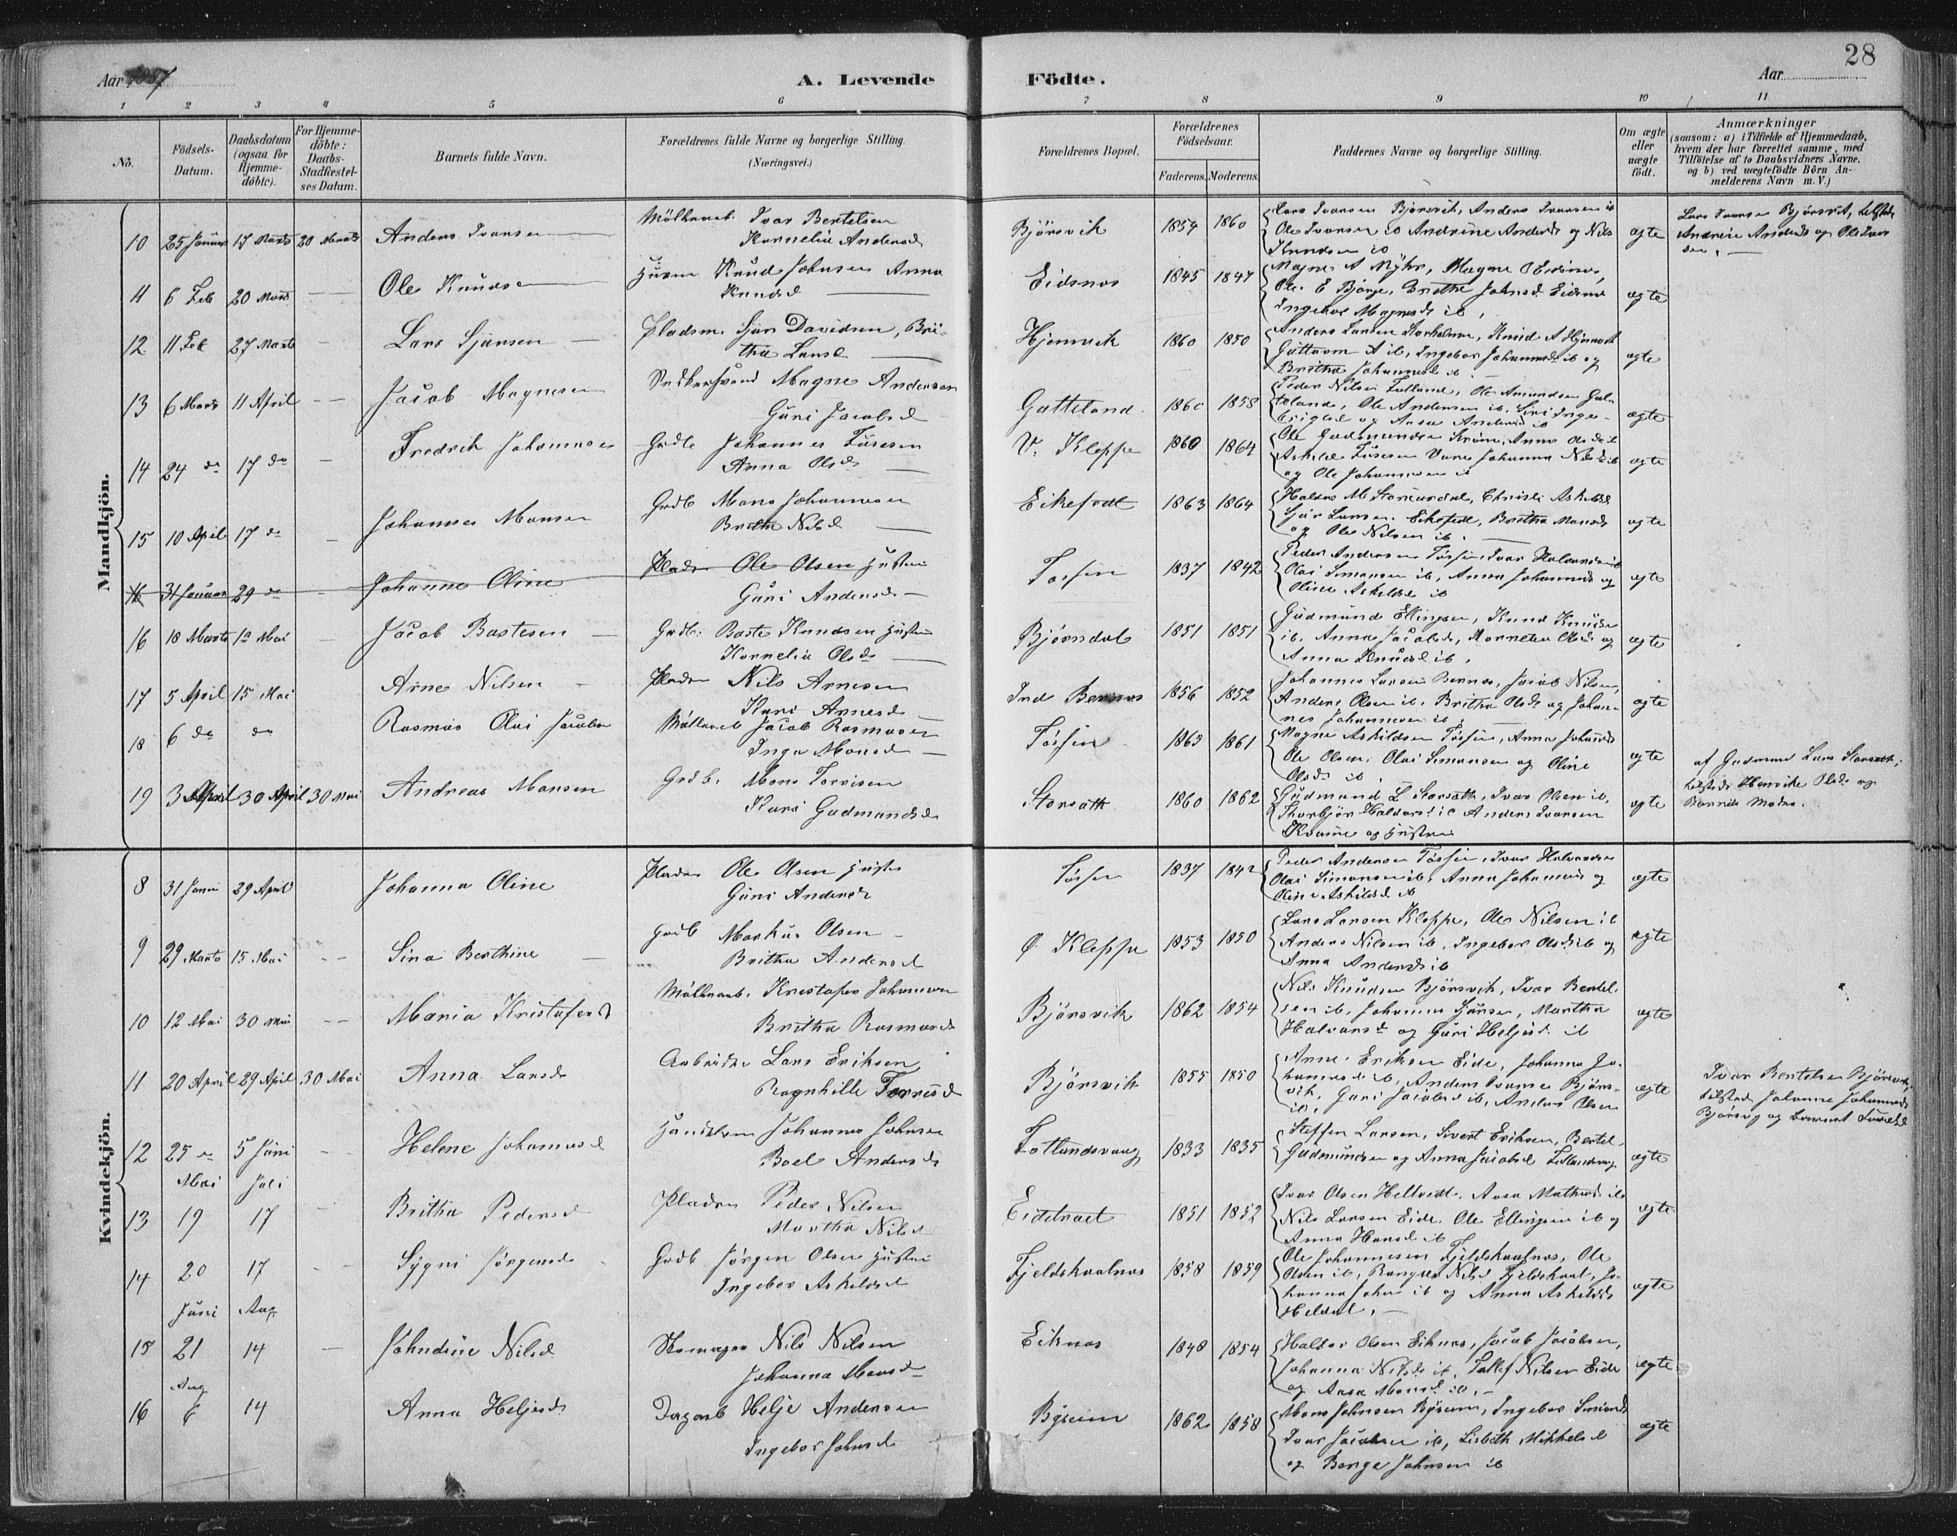 28
Aar 1887 A. Levende Födte. Aar
1 2 3 4 5 6 7 8 9 10 11
No.
Födsels-
Datum.
Daabsdatum
(ogsaa for
Hjemme-
döbte).
For Hjemme-
döbte:
Daabs-
Stadfæstel-
ses Datum.
Barnets fulde Navn.
Forældrenes fulde Navne og borgerlige Stilling.
(Næringsvei.)
Forældrenes Bopæl.
Forældrenes
Födselsaar.
Faderens. Moderens.
Faddernes Navne og borgerlige Stilling.
Om ægte
eller
uægte
födt.
Anmærkninger
(saasom: a) i Tilfælde af Hjemmedaab,
hvem der har forrettet samme, med
Tilföielse af to Daabsvidners Navne,
og b) ved uægtefödte Börn An-
melderens Navn m. V.)
Mandkjön.
10 25 Januar 17 Marts 20 Marts Anders Ivarsen
Ivar Bertelsen
Kornelia Andersd
Bjørsvik 1854 1860
Lars Ivarsen Bjørsvik, Anders Ivarsen ib
Ole Ivarsen ib Andrine Andersd og Nils
Knudsen ib
ægte
Lars Ivarsen Bjørsvik,
Andrine Andersd og Ole Ivar
sen.
6 Feb 20 Marts Ole Knudsen
Knud Johnsen Anna
Knudsd
Eidsnes 1845 1847
Magne A Myhr, Magne
Ole E Bjørge, Brithe Johnsd Eidsnes
Ingebor Magnesd ib,
ægte
12 11 Feb 27 Marts Lars Sjursen
Pladsm. Sjur Davidsen, Bri-
tha Larsd
Hjemvik 1860 1850
Anders Larsen Knud A Hjemvik
Guttorm A ib, Ingebor Johannesd ib og
Britha Johannesd ib
ægte
13 6 Marts 11 April Jacob Magnesen
Magne Andersen
Guri Jacobsd
Gatteland 1860 1858
Peder Nilsen Ole Amundsen Gat-
teland, Ole Andersen ib, Siri Inge-
og Aasa Andersd ib
ægte
14 24 do 17 do Fredrik Johannes
Grdb Johannes
Anna Olsd
V. Kleppe 1860 1864
Ole Gudmundsen Anna Olsd
Johanna Nilsd ib
og Ole Johannesen ib
ægte
15 10 April 17 do Johannes Monsen
Grdb Mons Johannesen
Brithe Nilsd
Eikefedt 1863 1864
Haldor M Christi Askelsd
Sjur Larsen Eikefedt, Britha Monsd
og Ole Nilsen ib.
ægte
16 31 Januar 29 do Johanne Oline
Pladsm Ole Olsen Hustru
Guri Andersd
Tossin 1837 1842
Peder Andersen Tossin, Ivar Halvorsen ib
Olai Simonsen ib, Anna Johannesd og
Oline Askildsd ib
ægte
16 18 Marts 1a Mai Jacob Bastesen
Grdb. Baste Knudsen Hustru
Kornelia Olsd
Bjørndal 1851 1851
Gudmund Ellingsen, Knud Knudsen
ib, Anna Jacobsd, Kornelia Olsd og
Anna Knudsd ib,
ægte
17 5 April 15 Mai Arne Nilsen
Pladsm Nils Arnesen
Kari Arnesd
Ind Bernes 1856 1852
Johannes Larsen Bernes, Jacob Nilsen,
Anders Olsen ib, Britha Olsd og Johan-
nes Johannesen ib
ægte
18 6 do do Rasmus Olai Jacobsen
Jacob Rasmusen
Inga Monsd
Tossin 1863 1861
Magne Askildsen Tossin, Anna Johannesd
Ole Olsen, Olai Simonsen og Oline
Olsd ib
ægte
19 3 April 30 April 30 Mai Andreas Monsen
Grdb. Mons
Kari Gudmundsd
Storsæth 1860 1862
Gudmund L Storsæth, Ivar Olsen ib,
Thorbjør Haldorsd ib Anders Ivarsen
og Hustru
ægte
af Gudmund Lars Storsæth,
Henrikke Olsd og
Kvindekjön.
8 31 Janu 29 April Johanna Oline
Pladsm Ole Olsen Hustru
Guri Andersd
Tossin 1837 1842
Peder Andersen Tossin, Ivar Halvorsen
Olai Simonsen ib, Anna Johannesd og
Oline Askildsd ib
ægte
9 29 Marts 15 Mai Sina Berthine
Grdb Markus Olsen
Britha Andersd
Ø Kleppe 1853 1850
Lars Larsen Kleppe, Ole Nilsen ib
Anders Nilsen ib, Ingebor Olsd ib og
Anna Andersd ib
ægte
10 12 Mai 30 Mai Maria Kristofersd
Kristofer Johannesen
Britha Rasmusd
Bjørsvik 1862 1854
Nils Knudsen Bjørsvik, Ivar Bertel
sen ib, Johannes Sjursen, Martha
Halvorsd og Guri Heljesd ib
ægte
11 20 April 29 April 30 Mai Anna Larsd
Arbeider Lars Eriksen
Ragnhille
Bjørsvik 1855 1850
Arne Eriksen Eide, Johanna Jo-
hannesd ib, Anders Ivarsen Bjørs-
vik, Guri Jacobsd ib, Anders Olsen
ib,
ægte
Ivar Bertelsen Bjørsvik,
Johanne Johannesd
Bjørsvig og
12 25 do 5 Juni Helene Johannesd
Johannes Johnsen
Boel Andersd
Totlandsvaag 1833 1835
Steffen Larsen, Sivert Eriksen, Bertel
Gudmundsen og Anna Jacobsd
ægte
Mai Juli
13 19 17 Britha Pedersd
Pladsm Peder Nilsen
Martha Nilsd
Eidetræet 1851 1852
Ivar Olsen Helltvedt, Aasa Mathisd ib
Nils Larsen Eide, Ole Ellingsen ib og
Anna Hansd ib
ægte
14 20 17 Sygni Jørgensd
Grdb Jørgen Olsen Hustru
Ingebor Askildsd
Fjeldskaalnes 1858 1859
Ole Johannesen Fjeldskaalnes, Ole
Olsen ib, Nilsd Fjeldskaal, Jo-
hanna Johnsd ib og Anna Askildsd
Heldal.
ægte
Juni Aug
15 21 14 Johndine Nilsd
Skomager Nils Nilsen
Johanna Monsd
Eiknes 1848 1854
Haldor Olsen Eiknes, Jacob Jacobsen,
Johanna Nilsd ib, Tollef Nilsen Eide
og Aasa Monsd ib.
ægte
Aug
16 6 14 Anna Heljesd
Helje Andersen
Ingebor Johnsd
Byseim 1862 1858
Mons Johnsen Byseim, Ingebor Simonsd
Ivar Jacobsen ib, Lisbeth Mikkelsd
og Børge Johnsen ib
ægte